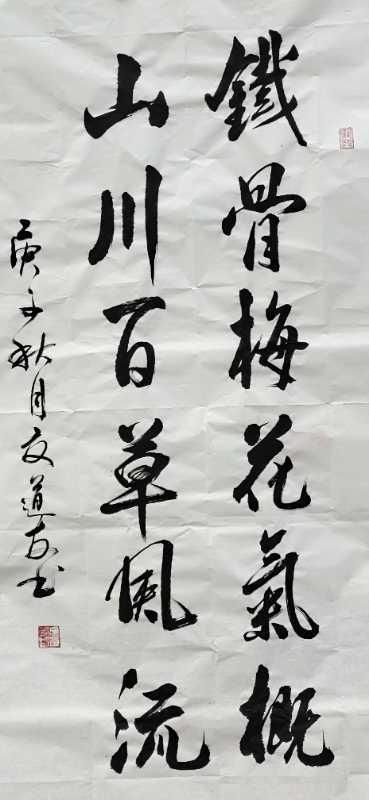 鐵骨梅花氣概
山川百草風流
庚子秋月文道友书